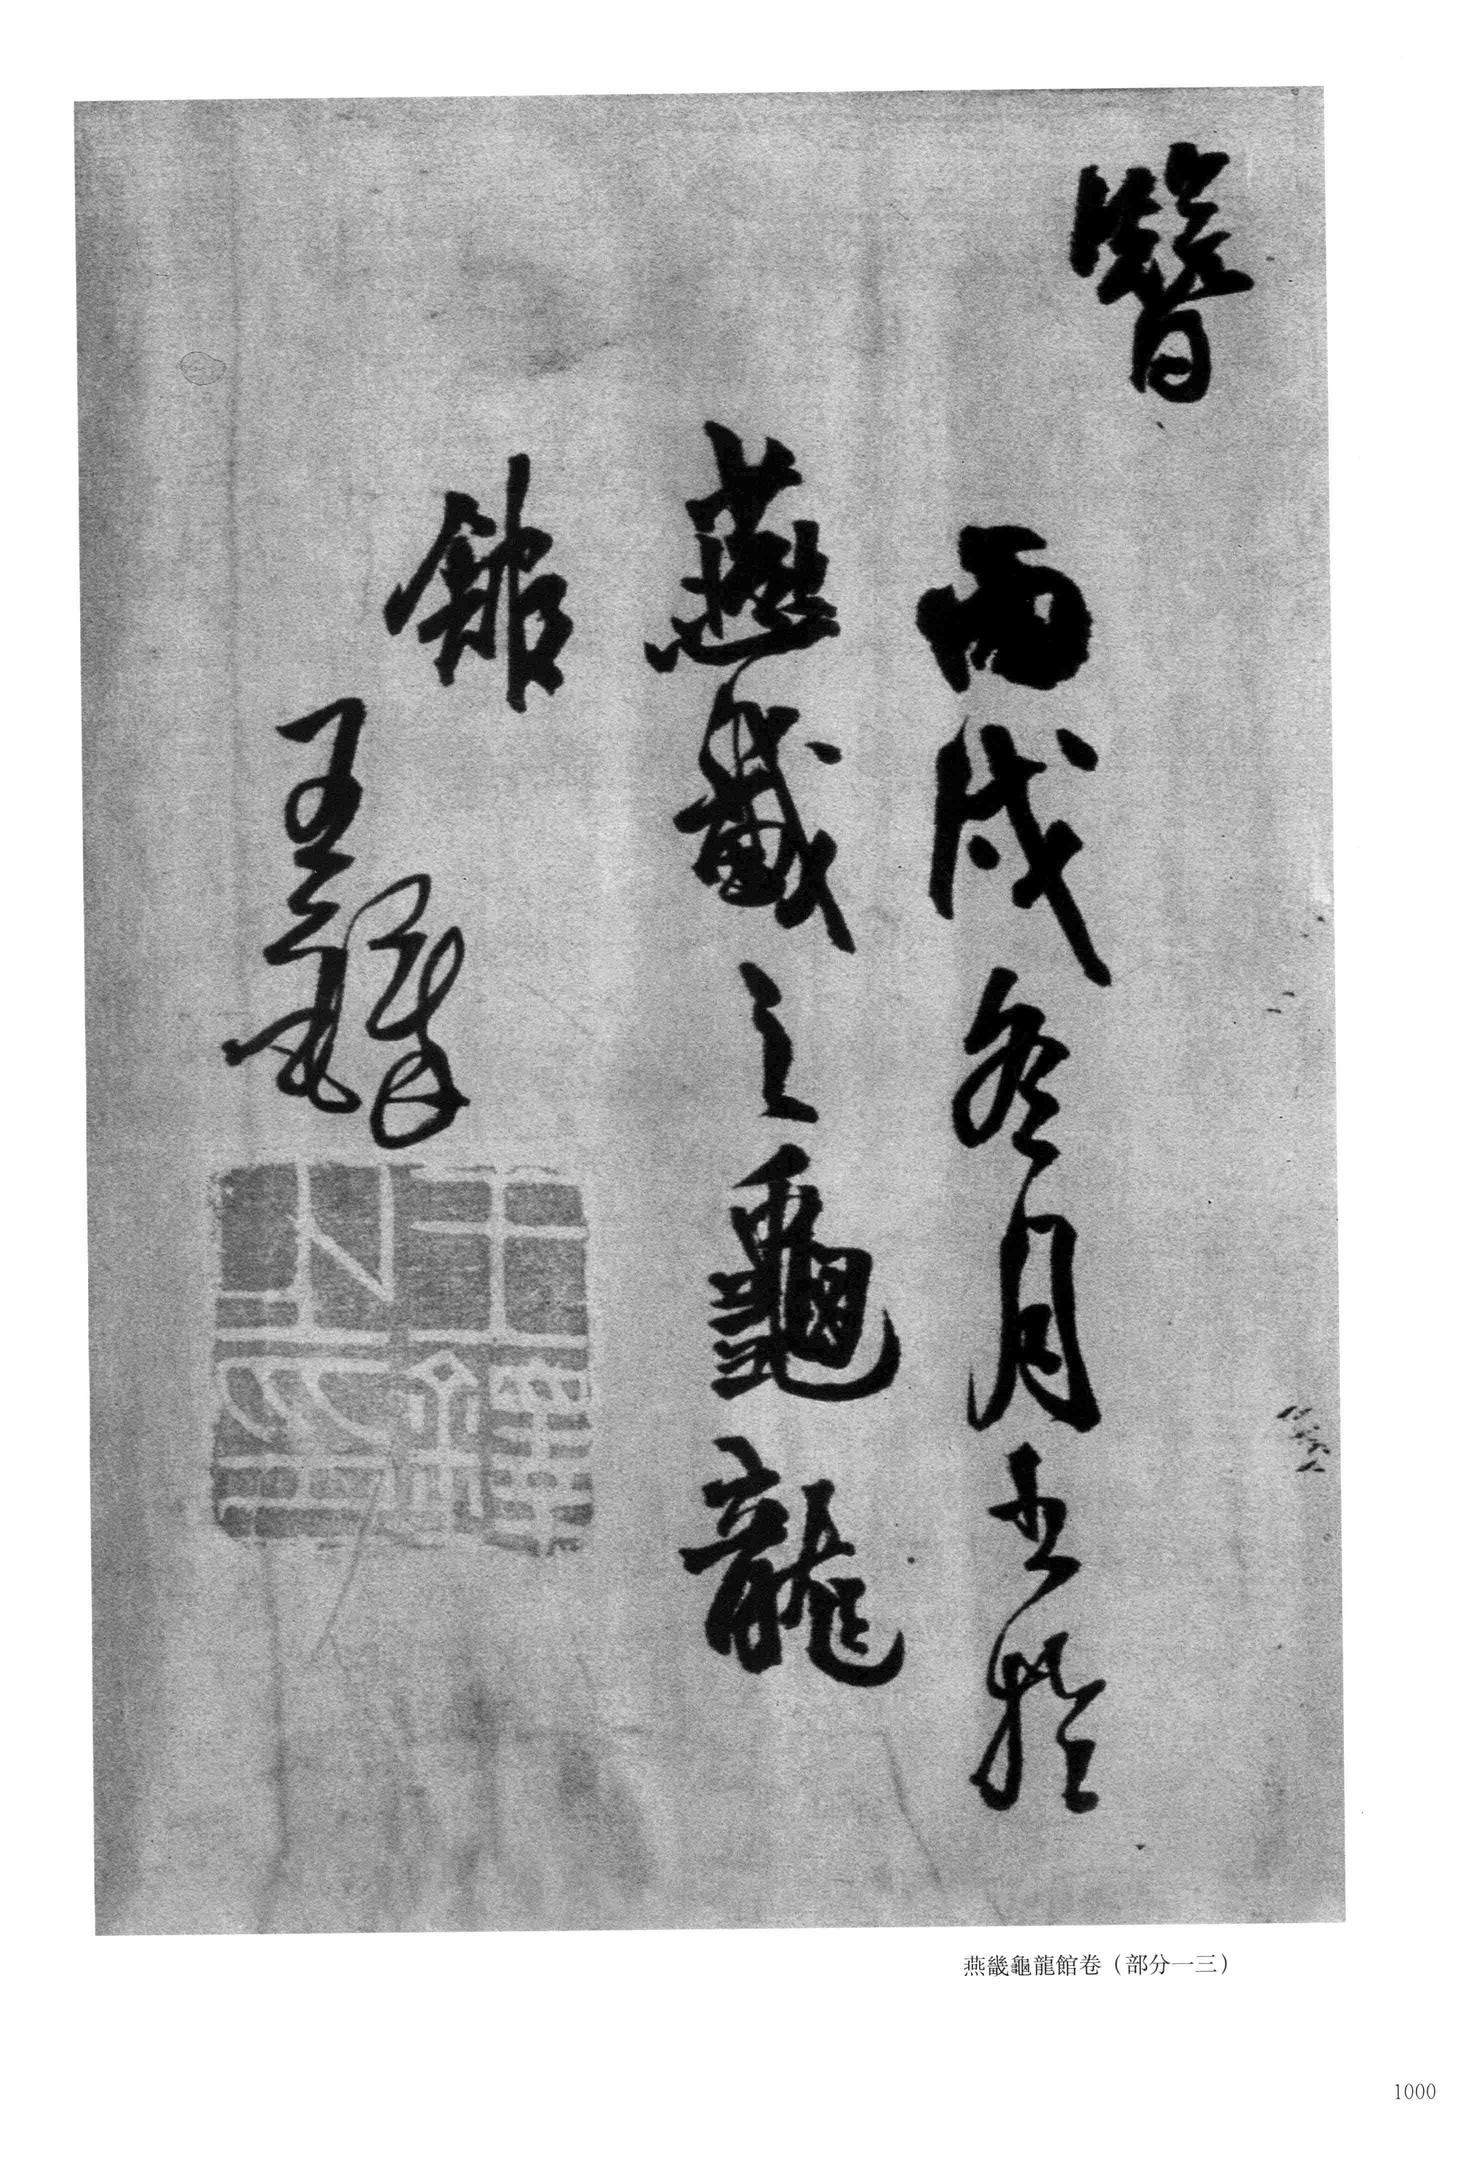 丙戌冬月書於
燕畿之龜龍
館
王鐸
王鐸之印
燕畿龜龍館卷（部分一三）
1000